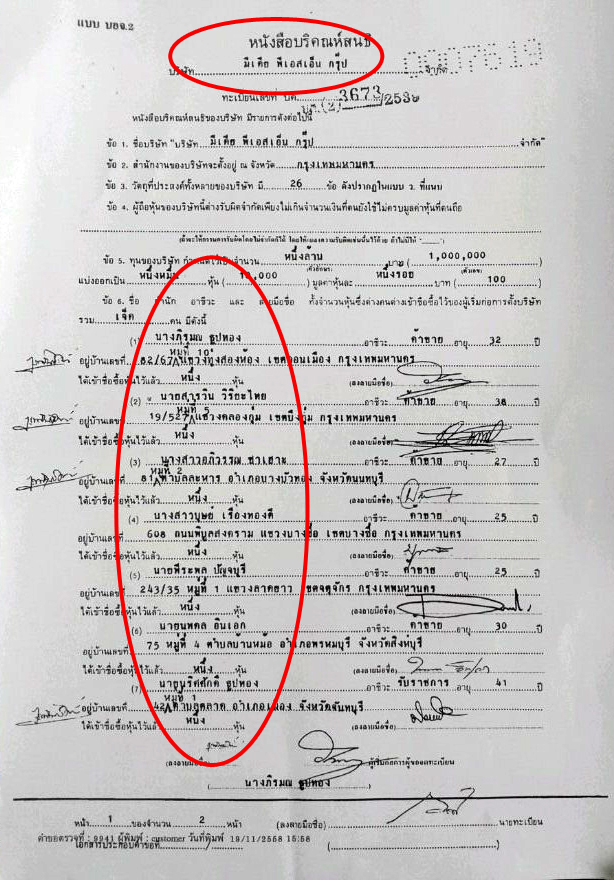 แบบ บอจ.2
หนังสือบริคณห์สนธิ
0007619
บริษัท มีเดีย พีเอสเอ็น กรุ๊ป จำกัด
ทะเบียนเลขที่ บค. (2) 3673/2536
หนังสือบริคณห์สนธิของบริษัท มีรายการดังต่อไปนี้
ข้อ 1. ชื่อบริษัท "บริษัท มีเดีย พีเอสเอ็น กรุ๊ป จำกัด"
ข้อ 2. สำนักงานของบริษัทจะตั้งอยู่ ณ จังหวัด กรุงเทพมหานคร
ข้อ 3. วัตถุที่ประสงค์ทั้งหลายของบริษัท มี 26 ข้อ ดังปรากฏในแบบ ว. ที่แนบ
ข้อ 4. ผู้ถือหุ้นของบริษัทนี้ต่างรับผิดจำกัดเพียงไม่เกินจำนวนเงินที่ตนยังใช้ไม่ครบมูลค่าหุ้นที่ตนถือ
ข้อ 5. ทุนของบริษัท กำหนดไว้เป็นจำนวน หนึ่งล้าน บาท ( 1,000,000 )
(ตัวอักษร) (ตัวเลข)
แบ่งออกเป็น หนึ่งหมื่น หุ้น ( 10,000 ) มูลค่าหุ้นละ หนึ่งร้อย บาท ( 100 )
ข้อ 6. ชื่อ สำนัก อาชีวะ และ ลายมือชื่อ ทั้งจำนวนหุ้นซึ่งต่างคนต่างเข้าชื่อซื้อไว้ของผู้เริ่มก่อการตั้งบริษัท
รวม เจ็ด คน มีดังนี้
(1) นางภิรมณ ธูปทอง อาชีวะ ค้าขาย อายุ 32 ปี
หมู่ที่ 10
อยู่บ้านเลขที่ 82/67 แขวงทุ่งสองห้อง เขตดอนเมือง กรุงเทพมหานคร
ได้เข้าชื่อซื้อหุ้นไว้แล้ว หนึ่ง หุ้น (ลงลายมือชื่อ)
(2) นายสารวิน วิริยะไทย อาชีวะ ค้าขาย อายุ 38 ปี
หมู่ที่ 5
อยู่บ้านเลขที่ 19/527 แขวงคลองกุ่ม เขตบึงกุ่ม กรุงเทพมหานคร
ได้เข้าชื่อซื้อหุ้นไว้แล้ว หนึ่ง หุ้น (ลงลายมือชื่อ)
(3) นางสาวอภิวรรณ อาชีวะ ค้าขาย อายุ 27 ปี
หมู่ที่ 2
อยู่บ้านเลขที่ 81 ตำบลละหาร อำเภอบางบัวทอง จังหวัดนนทบุรี
ได้เข้าชื่อซื้อหุ้นไว้แล้ว หนึ่ง หุ้น (ลงลายมือชื่อ)
(4) นางสาวบุษย์ เรืองทองดี อาชีวะ ค้าขาย อายุ 25 ปี
อยู่บ้านเลขที่ 608 ถนนพิบูลสงคราม แขวงบางซื่อ เขตบางซื่อ กรุงเทพมหานคร
ได้เข้าชื่อซื้อหุ้นไว้แล้ว หนึ่ง หุ้น (ลงลายมือชื่อ)
(5) นายพีระพล ปัญจบุรี อาชีวะ ค้าขาย อายุ 25 ปี
อยู่บ้านเลขที่ 243/35 หมู่ที่ 1 แขวงลาดยาว เขตจตุจักร กรุงเทพมหานคร
ได้เข้าชื่อซื้อหุ้นไว้แล้ว หนึ่ง หุ้น (ลงลายมือชื่อ)
(6) นายนพดล อินเอก อาชีวะ ค้าขาย อายุ 30 ปี
อยู่บ้านเลขที่ 75 หมู่ที่ 4 ตำบลบ้านหม้อ อำเภอพรหมบุรี จังหวัดสิงห์บุรี
ได้เข้าชื่อซื้อหุ้นไว้แล้ว หนึ่ง หุ้น (ลงลายมือชื่อ)
(7) นายบูริศักดิ์ ธูปทอง อาชีวะ รับราชการ อายุ 41 ปี
หมู่ที่ 1
อยู่บ้านเลขที่ 42 อำเภอเมือง จังหวัดจันทบุรี
ได้เข้าชื่อซื้อหุ้นไว้แล้ว หนึ่ง หุ้น (ลงลายมือชื่อ)
(ลงลายมือชื่อ) ผู้เริ่มก่อการผู้ขอจดทะเบียน
( นางภิรมณ ธูปทอง )
หน้า 1 ของจำนวน 2 หน้า (ลงลายมือชื่อ) นายทะเบียน
คำขอตรวจที่ : 9941 ผู้พิมพ์ : customer วันที่พิมพ์ 19/11/2558 15:58
เอกสารประกอบคำขอที่